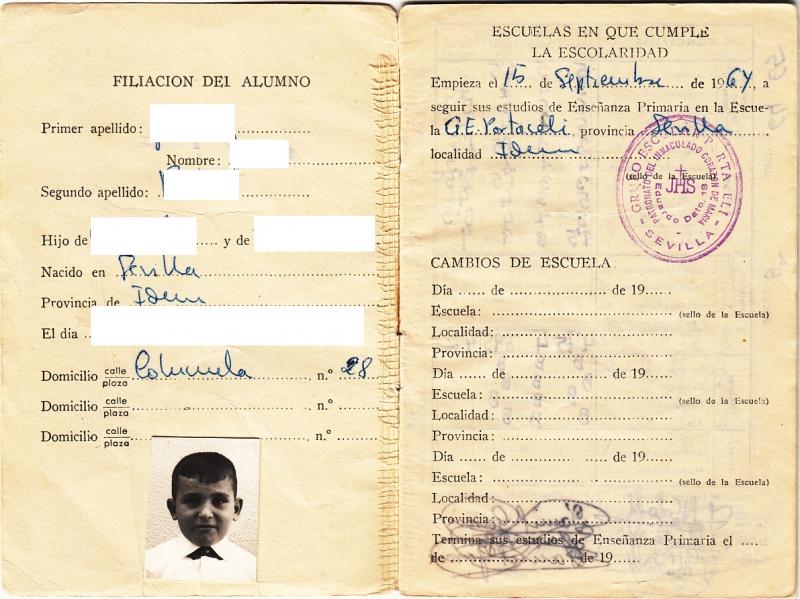 FILIACION DEL ALUMNO
Primer apellido:
Nombre:
Segundo apellido:
Hijo de ...... y de
Nacido en Sevilla
Provincia de Idem
El día
Domicilio calle plaza n.º 28
Domicilio calle plaza n.º
Domicilio calle plaza n.º
ESCUELAS EN QUE CUMPLE
LA ESCOLARIDAD
Empieza el 15 de Septiembre de 1964, a
seguir sus estudios de Enseñanza Primaria en la Escue-
la G.E. Portaceli, provincia Sevilla
localidad Idem
(sello de la Escuela)
GRUPO ESCOLAR PORTACELI
PATRONATO DEL INMACULADO CORAZON DE MARIA
JHS
Eduardo Dato, 18
- SEVILLA -
CAMBIOS DE ESCUELA
Día ...... de ........................ de 19......
Escuela: (sello de la Escuela)
Localidad:
Provincia:
Día ...... de ........................ de 19......
Escuela: (sello de la Escuela)
Localidad:
Provincia:
Día ...... de ........................ de 19......
Escuela: (sello de la Escuela)
Localidad:
Provincia:
Termina sus estudios de Enseñanza Primaria el .....
de ........................ de 19......